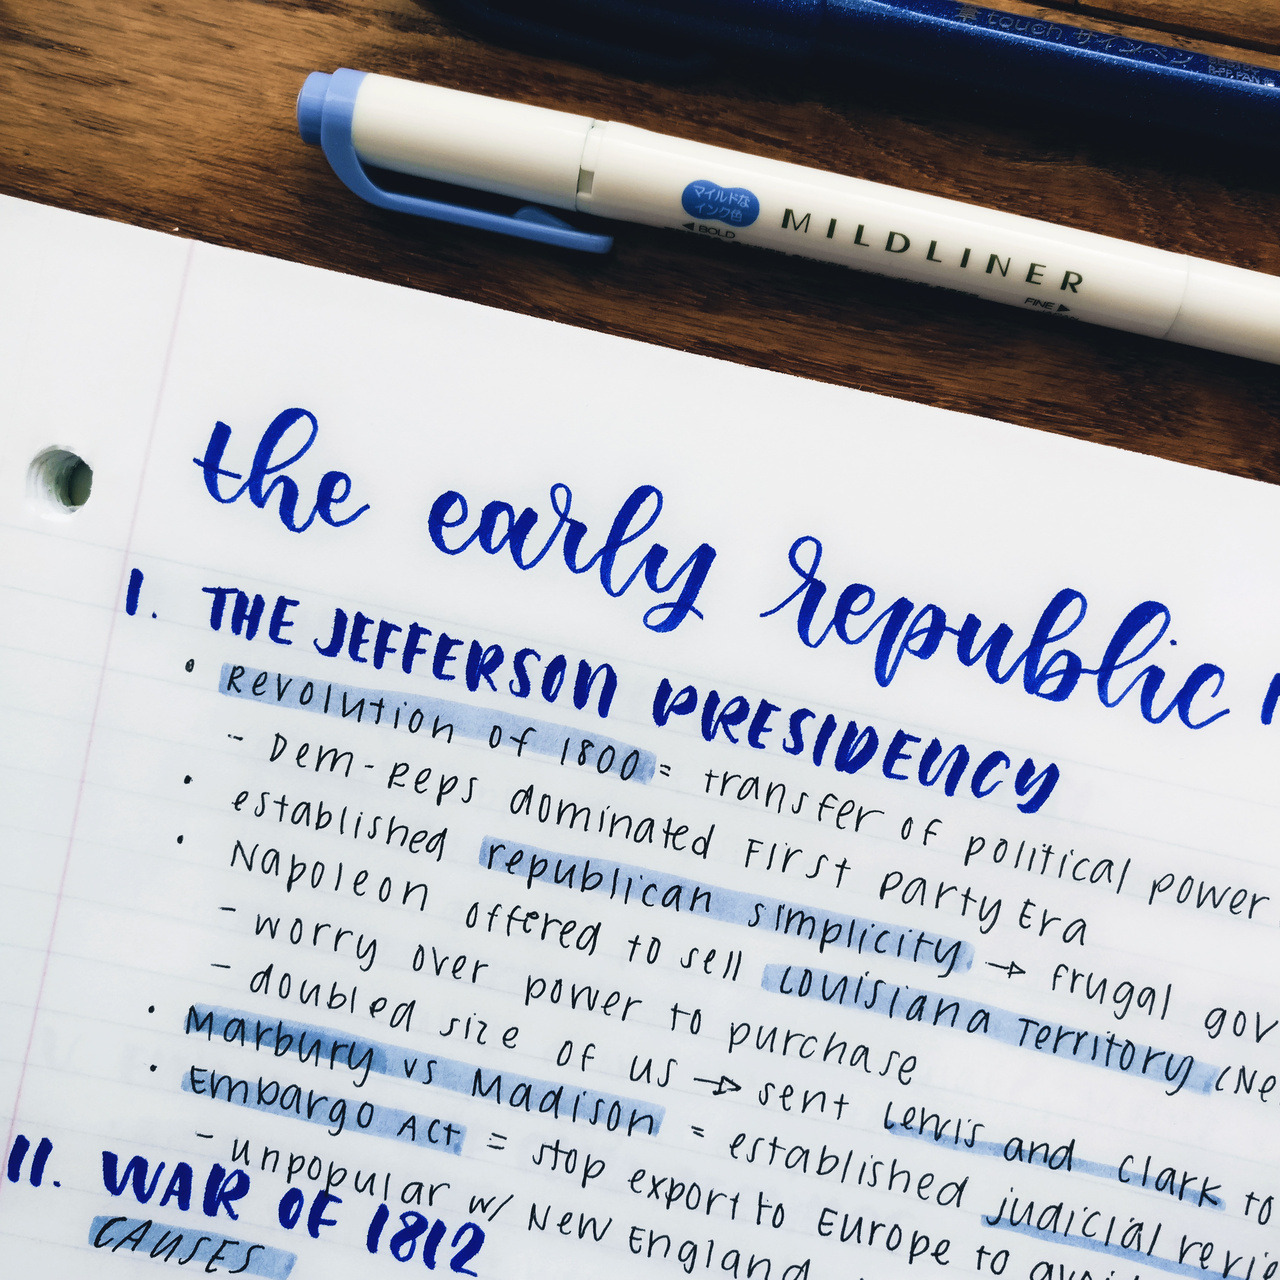 touch サインペン
マイルドな
インク色
◀BOLD
MILDLINER
FINE▶
the early republic
I. THE JEFFERSON PRESIDENCY
• Revolution of 1800 = transfer of political power
- Dem-Reps dominated First Party Era
• established republican simplicity → frugal gov
• Napoleon offered to sell Louisiana Territory (Ne
- worry over power to purchase
- doubled size of US → sent Lewis and Clark to
• Marbury vs Madison = established judicial revie
• Embargo Act = stop export to Europe to avoi
- unpopular w/ New England
II. WAR OF 1812
CAUSES